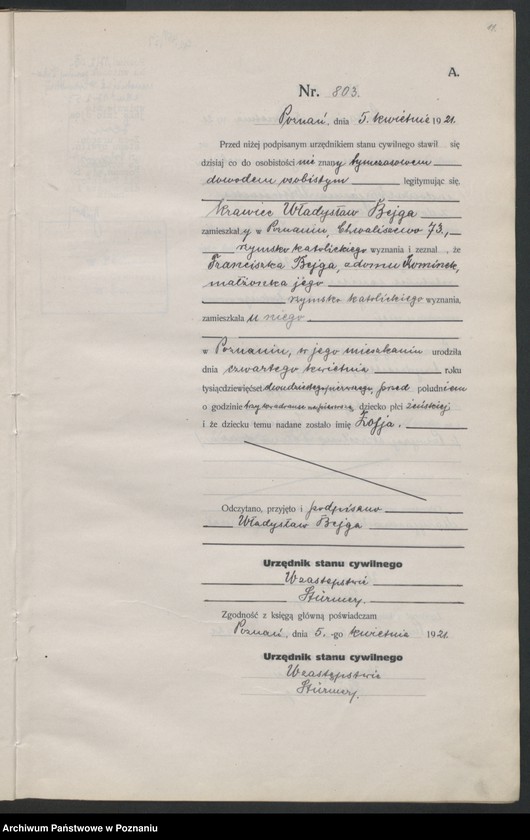 A.
Nr. 803.
Poznań, dnia 5. kwietnia 1921.
Przed niżej podpisanym urzędnikiem stanu cywilnego stawił się
dzisiaj co do osobistości nie znany tymczasowem
dowodem osobistym legitymując się.
krawiec Władysław Bejga
zamieszkały w Poznaniu, Chwaliszewo 73,
rzymsko katolickiego wyznania i zeznał, że
Franciszka Bejga, z domu Kominek,
małżonka jego
rzymsko katolickiego wyznania,
zamieszkała u niego
w Poznaniu, w jego mieszkaniu urodziła
dnia czwartego kwietnia roku
tysiącdziewięćset dwudziestego pierwszego, przed południem
o godzinie trzy kwadranse na pierwszą dziecko płci żeńskiej
i że dziecku temu nadane zostało imię Zofja.
Odczytano, przyjęto i podpisano
Władysław Bejga
Urzędnik stanu cywilnego
W zastępstwie
Stürmer.
Zgodność z księgą główną poświadczam
Poznań, dnia 5.-go kwietnia 1921.
Urzędnik stanu cywilnego
W zastępstwie
Stürmer.
Archiwum Państwowe w Poznaniu